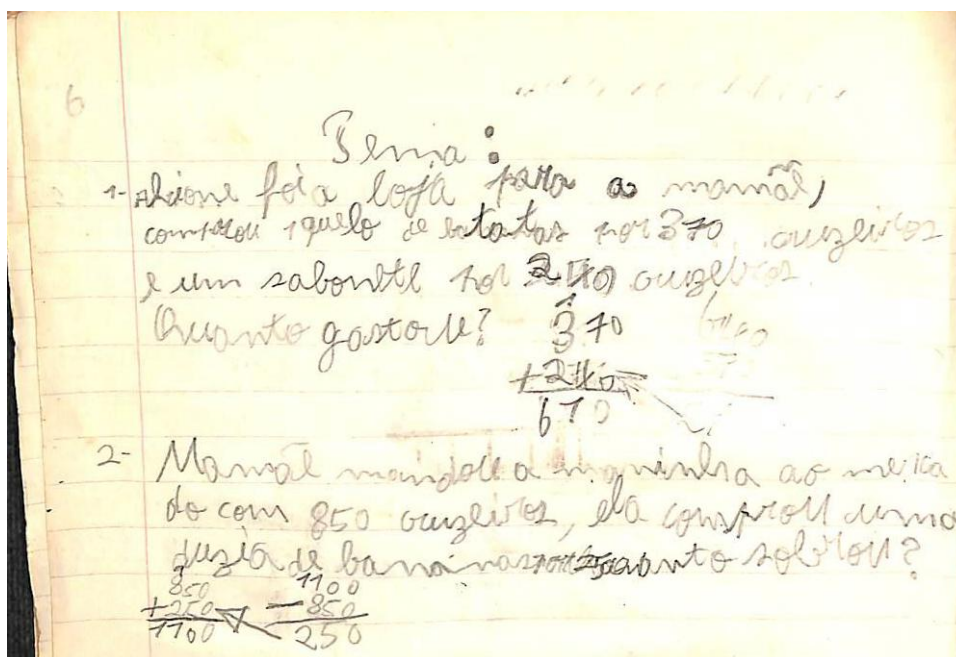 6
Tema:
1- Alcione foi a loja para a mamãe,
comprou 1 quelo de batatas por 370 cruzeiros
e um sabonete por 240 cruzeiros.
Quanto gastou?
370
+240
610
2- Mamãe mandou a maninha ao merca
do com 850 cruzeiros, ela comprou uma
duzia de bananas quanto sobrou?
850 1100
+250 -850
1100 250